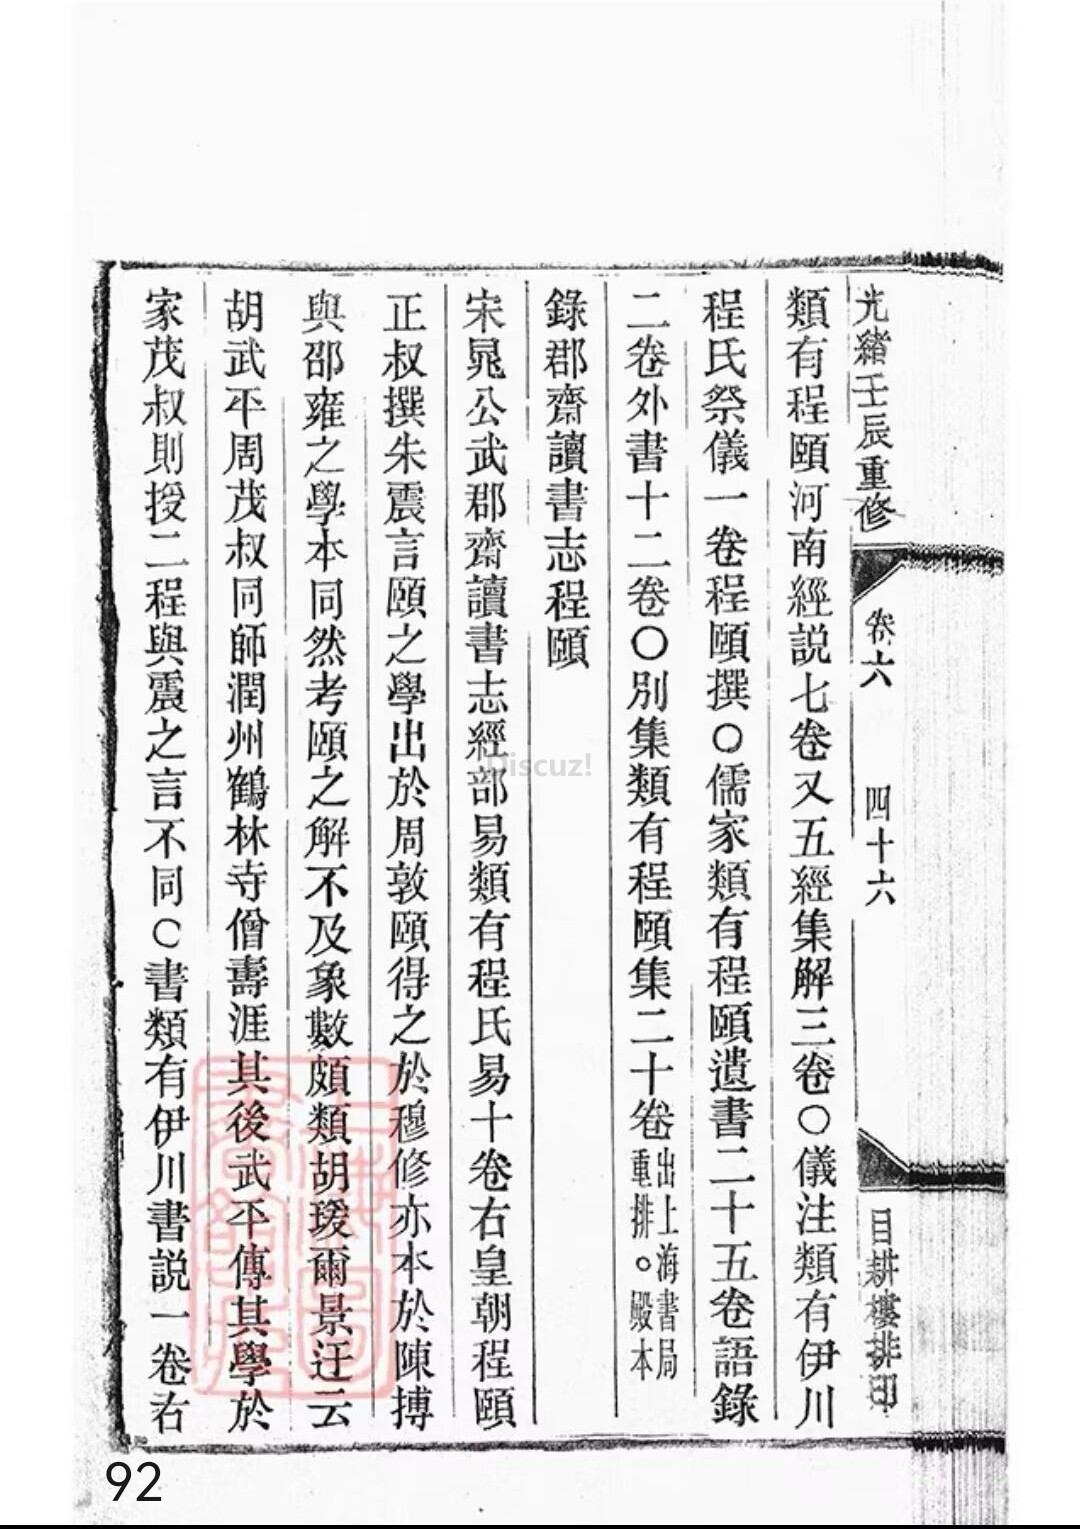 光緒壬辰重修
卷六
四十六
目耕樓排印
類有程頤河南經説七卷又五經集解三卷〇儀注類有伊川
程氏祭儀一卷程頤撰〇儒家類有程頤遺書二十五卷語錄
二卷外書十二卷〇別集類有程頤集二十卷出上海書局重排。殿本
錄郡齋讀書志程頤
宋晁公武郡齋讀書志經部易類有程氏易十卷右皇朝程頤
正叔撰朱震言頤之學出於周敦頤得之於穆修亦本於陳摶
與邵雍之學本同然考頤之解不及象數頗類胡瑗爾景迂云
胡武平周茂叔同師潤州鶴林寺僧壽涯其後武平傳其學於
家茂叔則授二程與震之言不同〇書類有伊川書説一卷右
Discuz!
92